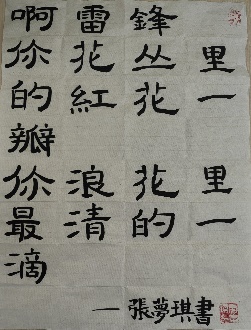 啊雷鋒
你花丛里
的紅花一
瓣
你浪花里
最清的一
滴
— 張夢琪書